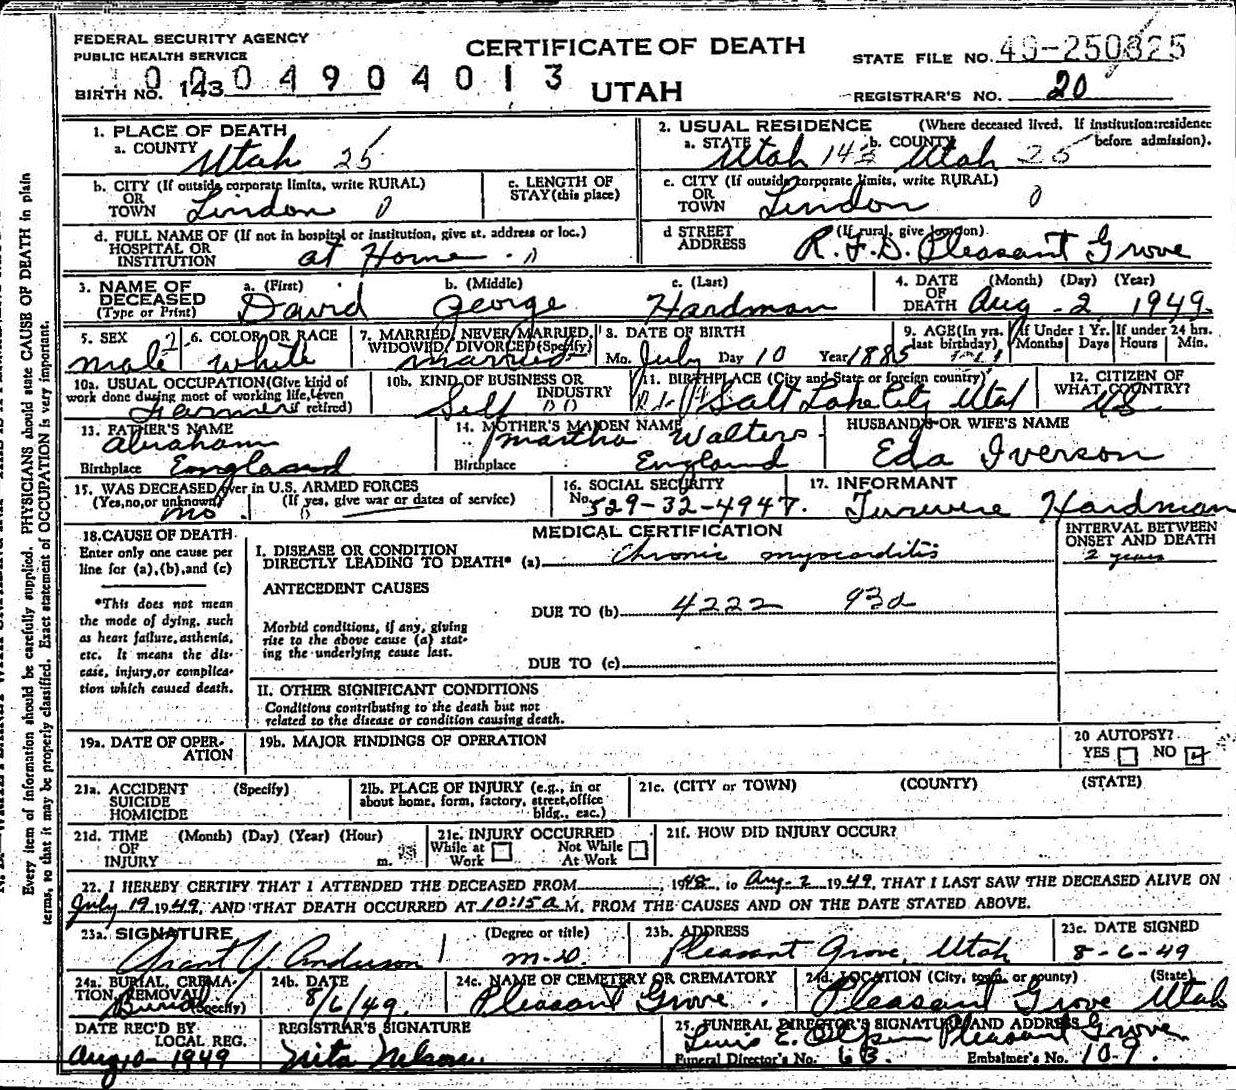 FEDERAL SECURITY AGENCY
PUBLIC HEALTH SERVICE
CERTIFICATE OF DEATH
UTAH
STATE FILE NO. 49-250825
BIRTH NO. 143
0004904013
REGISTRAR'S NO. 20
1. PLACE OF DEATH
a. COUNTY Utah 25
2. USUAL RESIDENCE (Where deceased lived. If institution:residence before admission).
a. STATE Utah 143 b. COUNTY Utah 25
b. CITY (If outside corporate limits, write RURAL)
OR
TOWN Lindon 0
c. LENGTH OF
STAY (this place)
c. CITY (If outside corporate limits, write RURAL)
OR
TOWN Lindon 0
d. FULL NAME OF (If not in hospital or institution, give st. address or loc.)
HOSPITAL OR
INSTITUTION at Home
d STREET (If rural, give location)
ADDRESS R.F.D. Pleasant Grove
3. NAME OF
DECEASED
(Type or Print)
a. (First) David
b. (Middle) George
c. (Last) Hardman
4. DATE (Month) (Day) (Year)
OF
DEATH Aug - 2 1949.
5. SEX male
6. COLOR OR RACE white
7. MARRIED, NEVER MARRIED,
WIDOWED, DIVORCED (Specify) married
8. DATE OF BIRTH
Mo. July Day 10 Year 1885
9. AGE (In yrs. last birthday)
If Under 1 Yr. Months Days
If under 24 hrs. Hours Min.
10a. USUAL OCCUPATION (Give kind of
work done during most of working life, even
retired) Farmer
10b. KIND OF BUSINESS OR
INDUSTRY
Self
11. BIRTHPLACE (City and State or foreign country)
Salt Lake City Utah
12. CITIZEN OF
WHAT COUNTRY?
US
13. FATHER'S NAME
Abraham
Birthplace England
14. MOTHER'S MAIDEN NAME
Martha Walters
Birthplace England
HUSBAND'S OR WIFE'S NAME
Eda Iverson
15. WAS DECEASED ever in U.S. ARMED FORCES
(Yes, no, or unknown) (If yes, give war or dates of service)
no
16. SOCIAL SECURITY
No. 529-32-4947.
17. INFORMANT
Hardman
18. CAUSE OF DEATH
Enter only one cause per
line for (a), (b), and (c)
*This does not mean
the mode of dying, such
as heart failure, asthenia,
etc. It means the dis-
ease, injury, or complica-
tion which caused death.
MEDICAL CERTIFICATION
I. DISEASE OR CONDITION
DIRECTLY LEADING TO DEATH* (a) Chronic myocarditis
INTERVAL BETWEEN
ONSET AND DEATH
2 years
ANTECEDENT CAUSES
DUE TO (b) 4222 93d
Morbid conditions, if any, giving
rise to the above cause (a) stat-
ing the underlying cause last.
DUE TO (c)
II. OTHER SIGNIFICANT CONDITIONS
Conditions contributing to the death but not
related to the disease or condition causing death.
19a. DATE OF OPER-
ATION
19b. MAJOR FINDINGS OF OPERATION
20 AUTOPSY?
YES NO
21a. ACCIDENT (Specify)
SUICIDE
HOMICIDE
21b. PLACE OF INJURY (e.g., in or
about home, form, factory, street, office
bldg., eac.)
21c. (CITY or TOWN) (COUNTY) (STATE)
21d. TIME (Month) (Day) (Year) (Hour)
OF
INJURY m.
21e. INJURY OCCURRED
While at Work
Not While At Work
21f. HOW DID INJURY OCCUR?
22. I HEREBY CERTIFY THAT I ATTENDED THE DECEASED FROM 1948, to Aug-2 1949, THAT I LAST SAW THE DECEASED ALIVE ON
July 19 1949, AND THAT DEATH OCCURRED AT 10:15 a M. FROM THE CAUSES AND ON THE DATE STATED ABOVE.
23a. SIGNATURE (Degree or title)
Grant Y. Anderson M.D.
23b. ADDRESS
Pleasant Grove, Utah
23c. DATE SIGNED
8-6-49
24a. BURIAL, CREMA-
TION, REMOVAL (Specify)
Burial
24b. DATE
8/6/49
24c. NAME OF CEMETERY OR CREMATORY
Pleasant Grove.
24d. LOCATION (City, town, or county) (State)
Pleasant Grove Utah
DATE REC'D BY
LOCAL REG.
Aug 10 - 1949
REGISTRAR'S SIGNATURE
Nita Nelson.
25. FUNERAL DIRECTOR'S SIGNATURE AND ADDRESS
Pleasant Grove
Funeral Director's No. 63 Embalmer's No. 109.
Every item of information should be carefully supplied. PHYSICIANS should state CAUSE OF DEATH in plain
terms, so that it may be properly classified. Exact statement of OCCUPATION is very important.